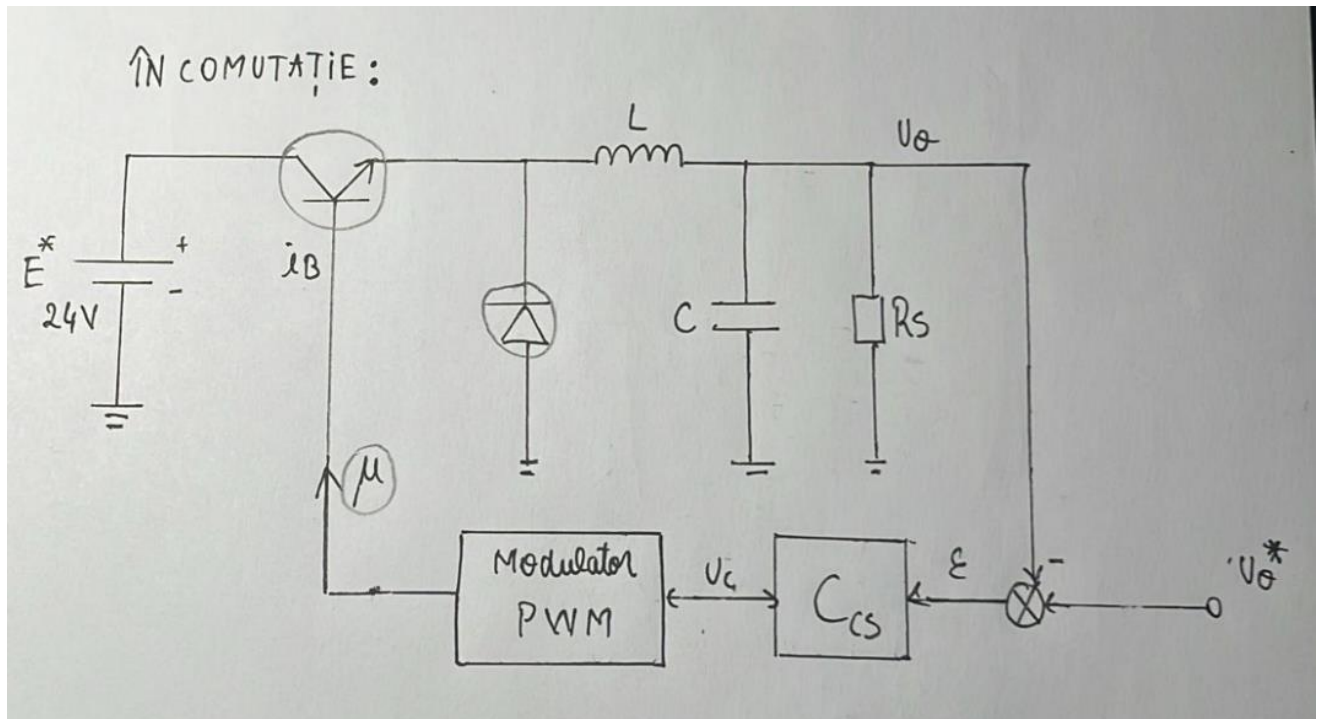 ÎN COMUTAȚIE:
L
Uo
E*
24V
+
-
iB
C
Rs
μ
Modulator
PWM
Uc
Ccs
ε
-
Uo*